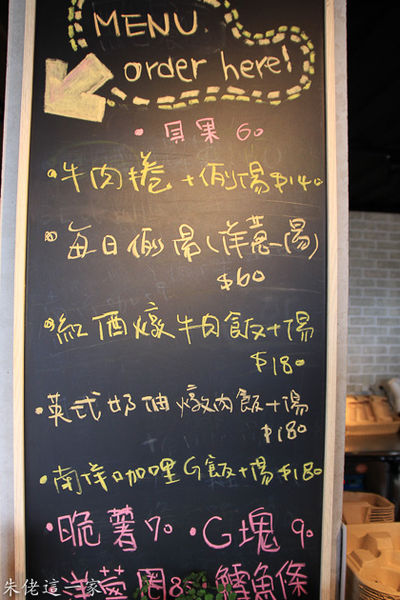 MENU
order here!
• 貝果 60
• 牛肉捲+例湯 $140
• 每日例湯(洋蔥湯)
$60
• 紅酒燉牛肉飯+湯
$180
• 英式奶油燉肉飯+湯
$180
• 南洋咖哩G飯+湯 $180
• 脆薯70 • G塊 90
洋蔥圈85 鱈魚條
朱佬這一家